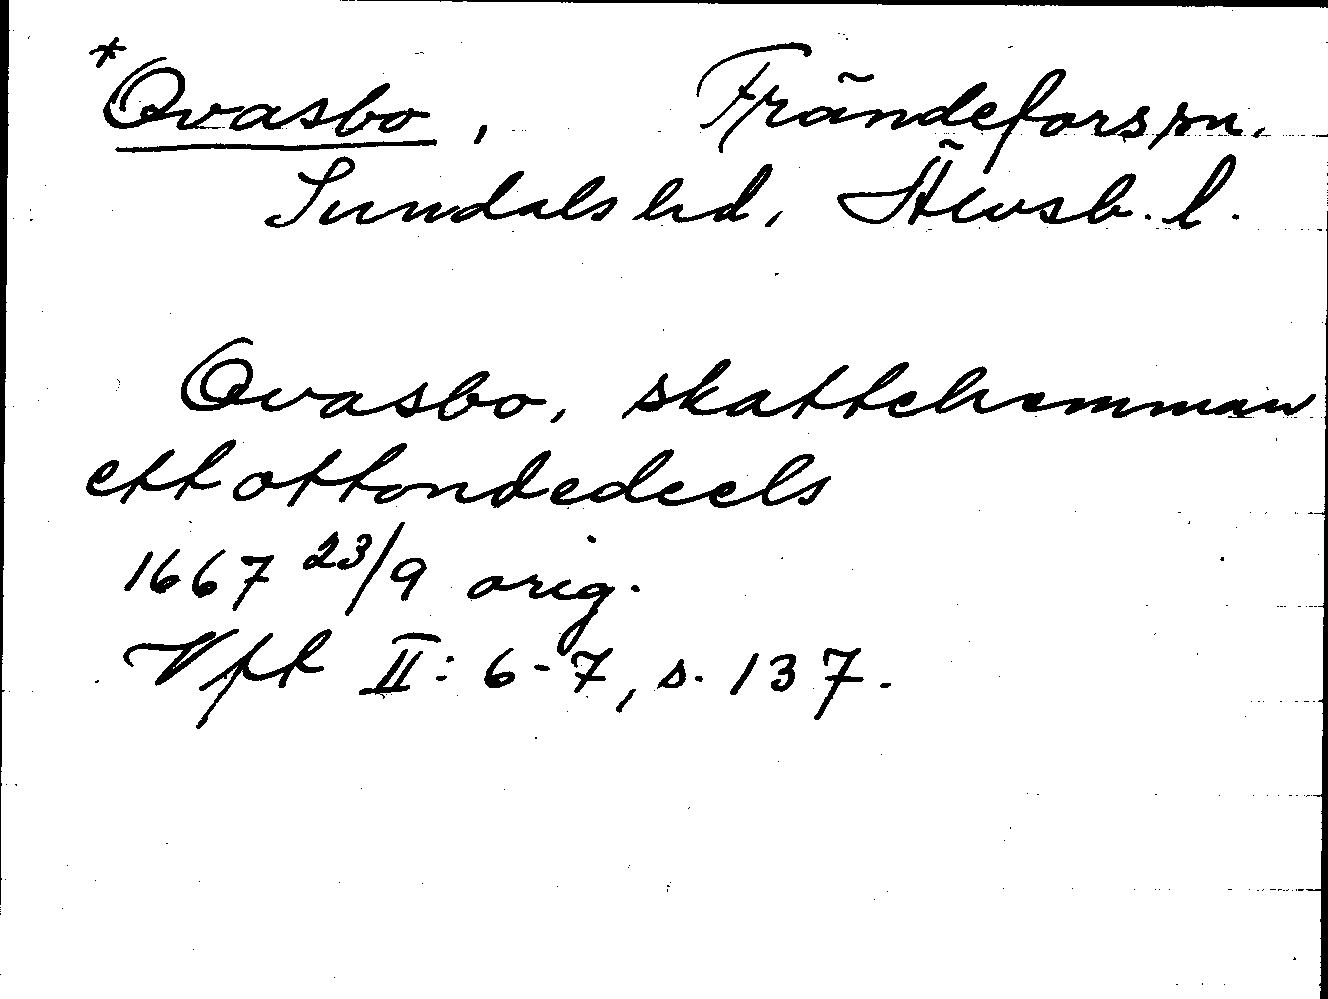 *Qvasbo, Frändefors sn.
Sundals hd, Älvsb. l.
Qvasbo, skattehemman
ett ottondedeels
1667 23/9 orig.
Vfk II: 6-7, s. 137.